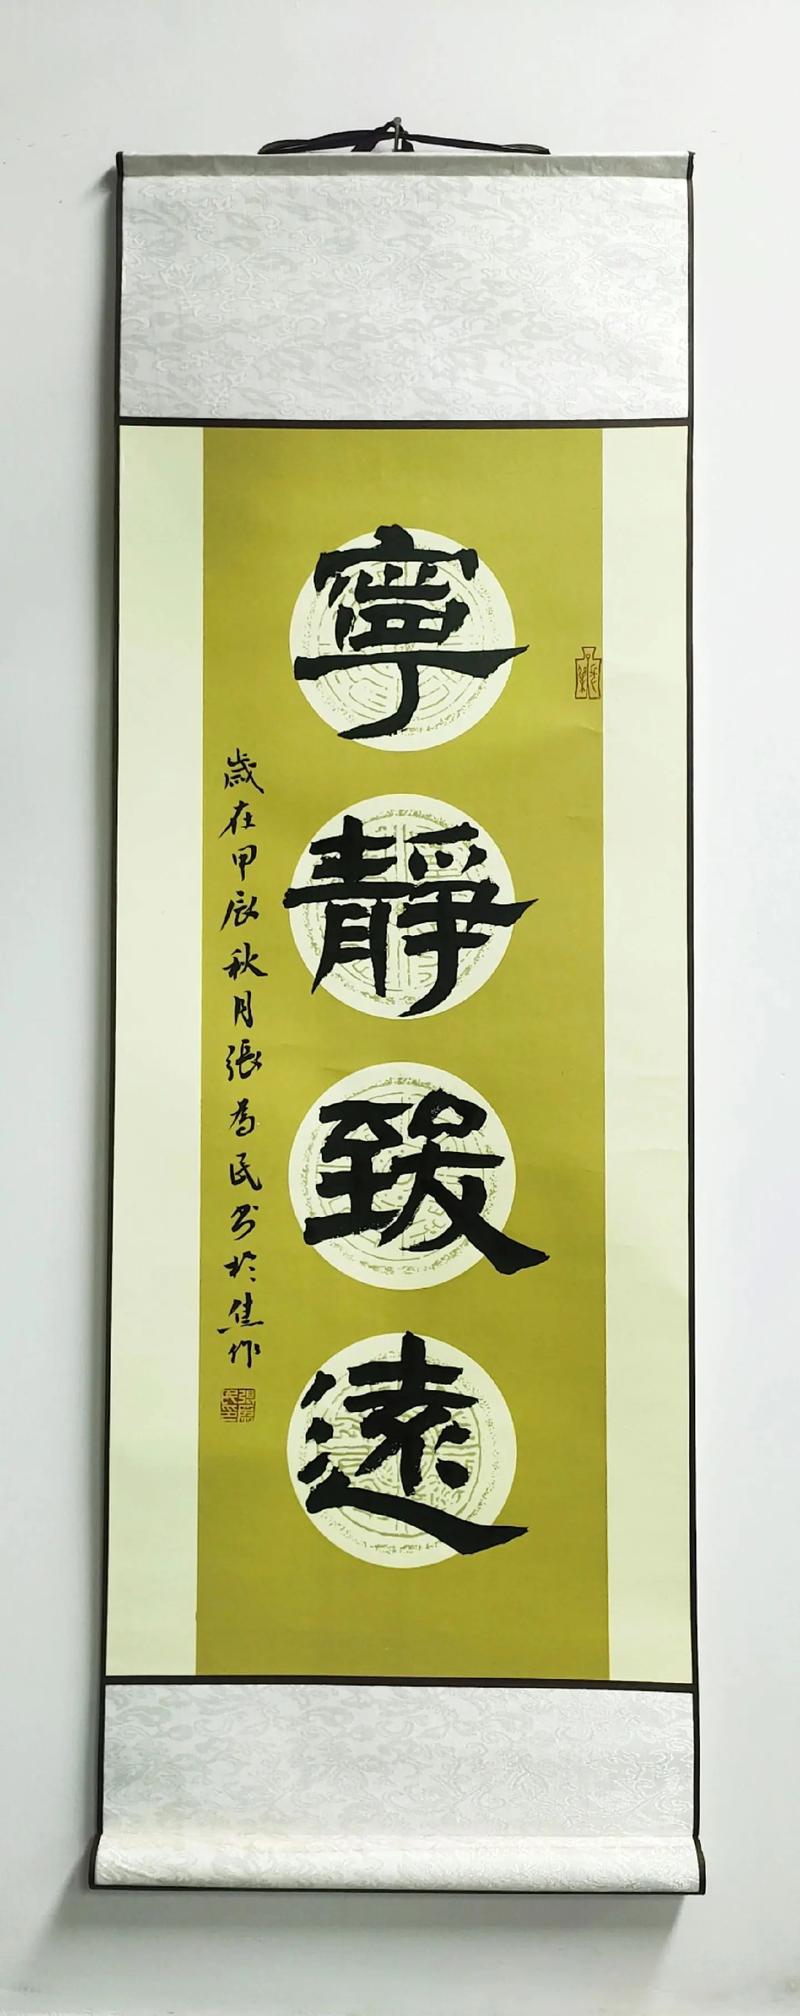 寧靜致遠
歲在甲辰秋月張為民書於焦作